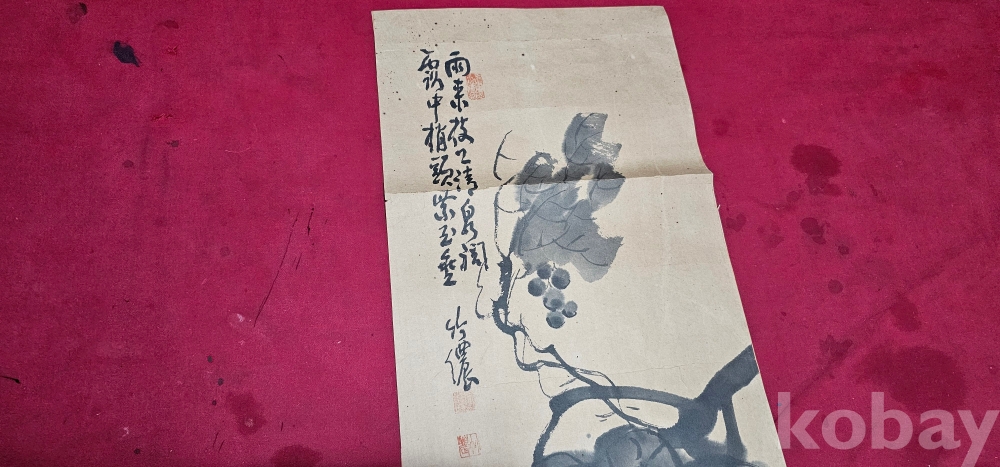 雨來枝上清泉
露中梢頭紫玉垂
竹儂
kobay